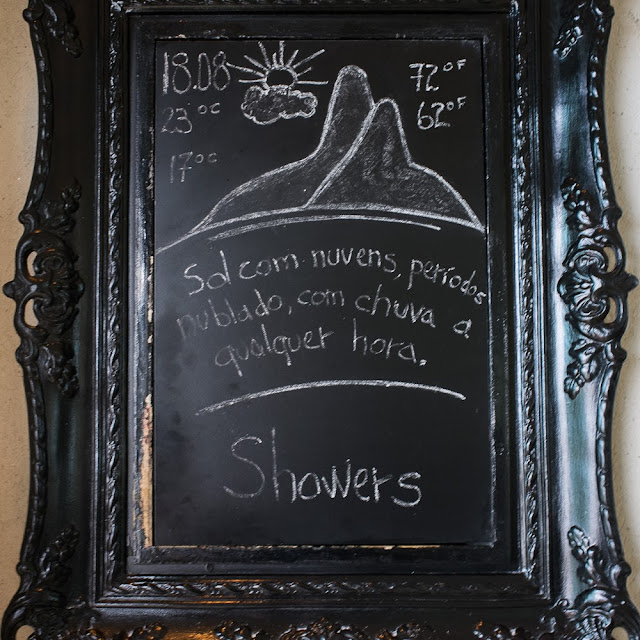 18.08
23°C
17°C
72°F
62°F
Sol com nuvens, períodos
nublado, com chuva a
qualquer hora.
Showers